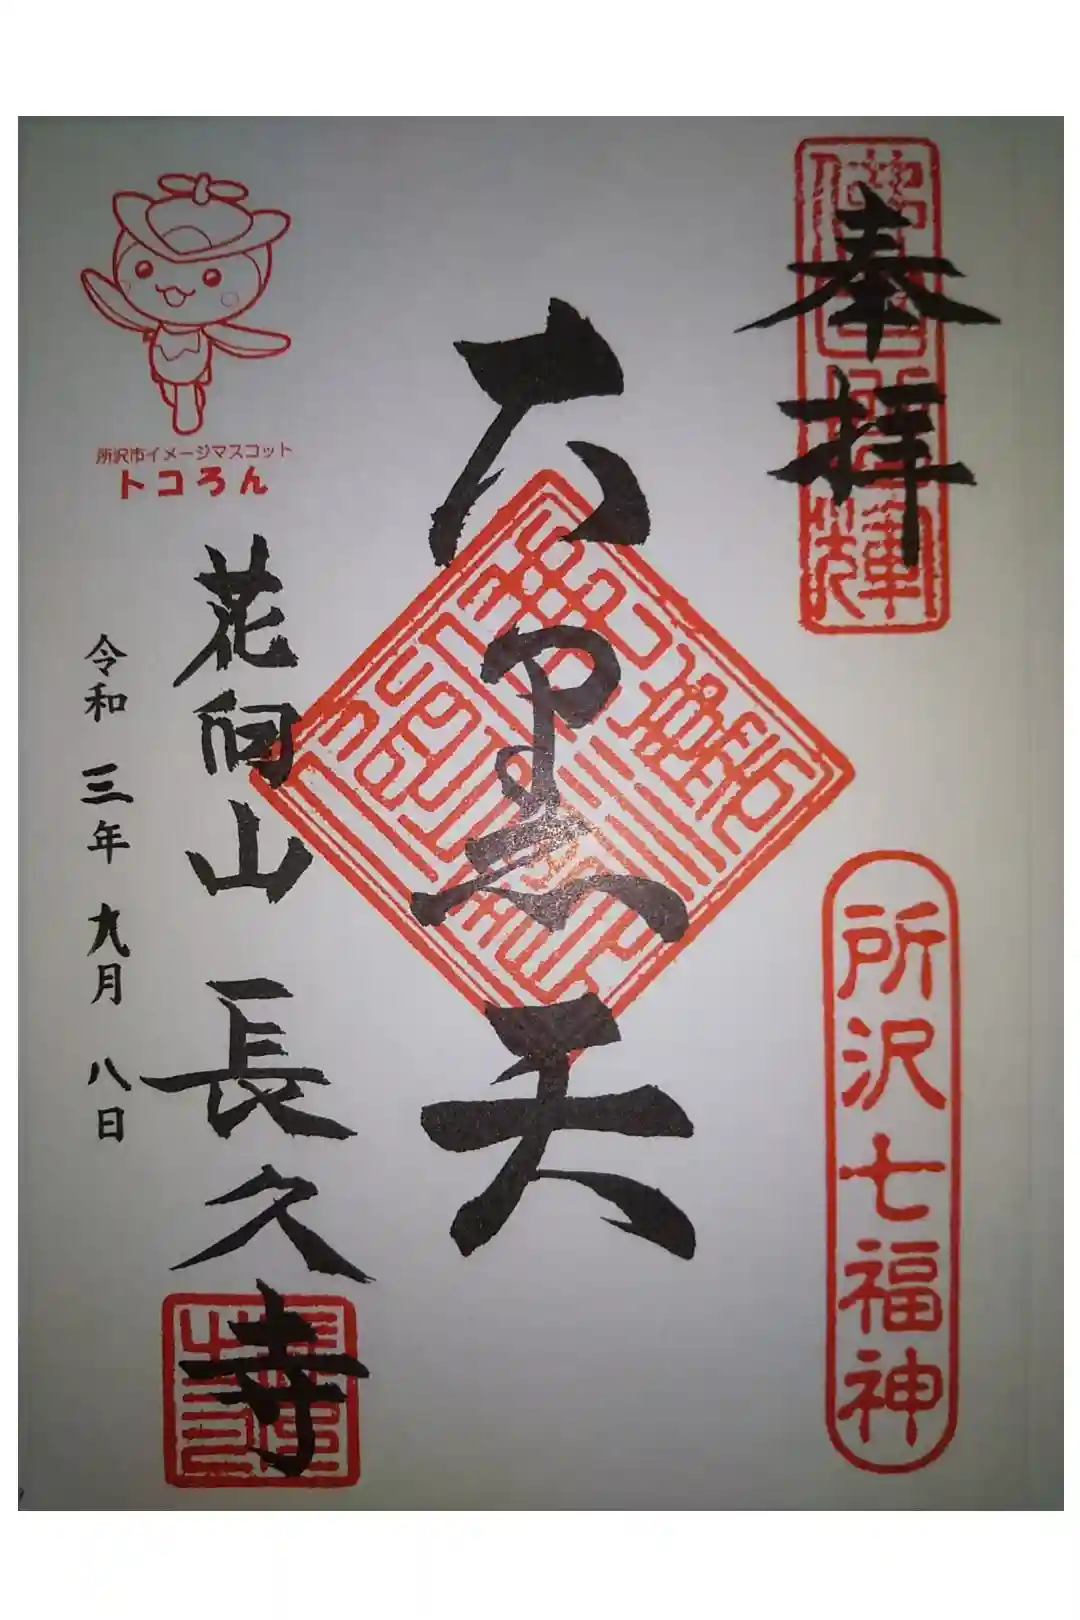 奉拝
所沢七福神
大黒天
所沢市イメージマスコット
トコろん
花向山 長久寺
令和 三年 九月 八日